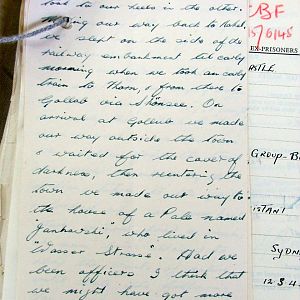 took to our heels in the other.
making our way back to Rahel,
we slept on the side of the
railway embankment till early
morning when we took an early
train to Thorn, & from there to
Gollub via Shönsee. On
arrival at Goleub we made
our way outside the town
& waited for the cover of
darkness, then reentering the
town we made our way to
the house of a Pole named
Jankowski, who lived in
"Wasser Strasse". Had we
been officers I think that
we might have got more
BF
EX-PRISONERS
STLE
GROUP-B
ISTANI
SYDN
12.8.4